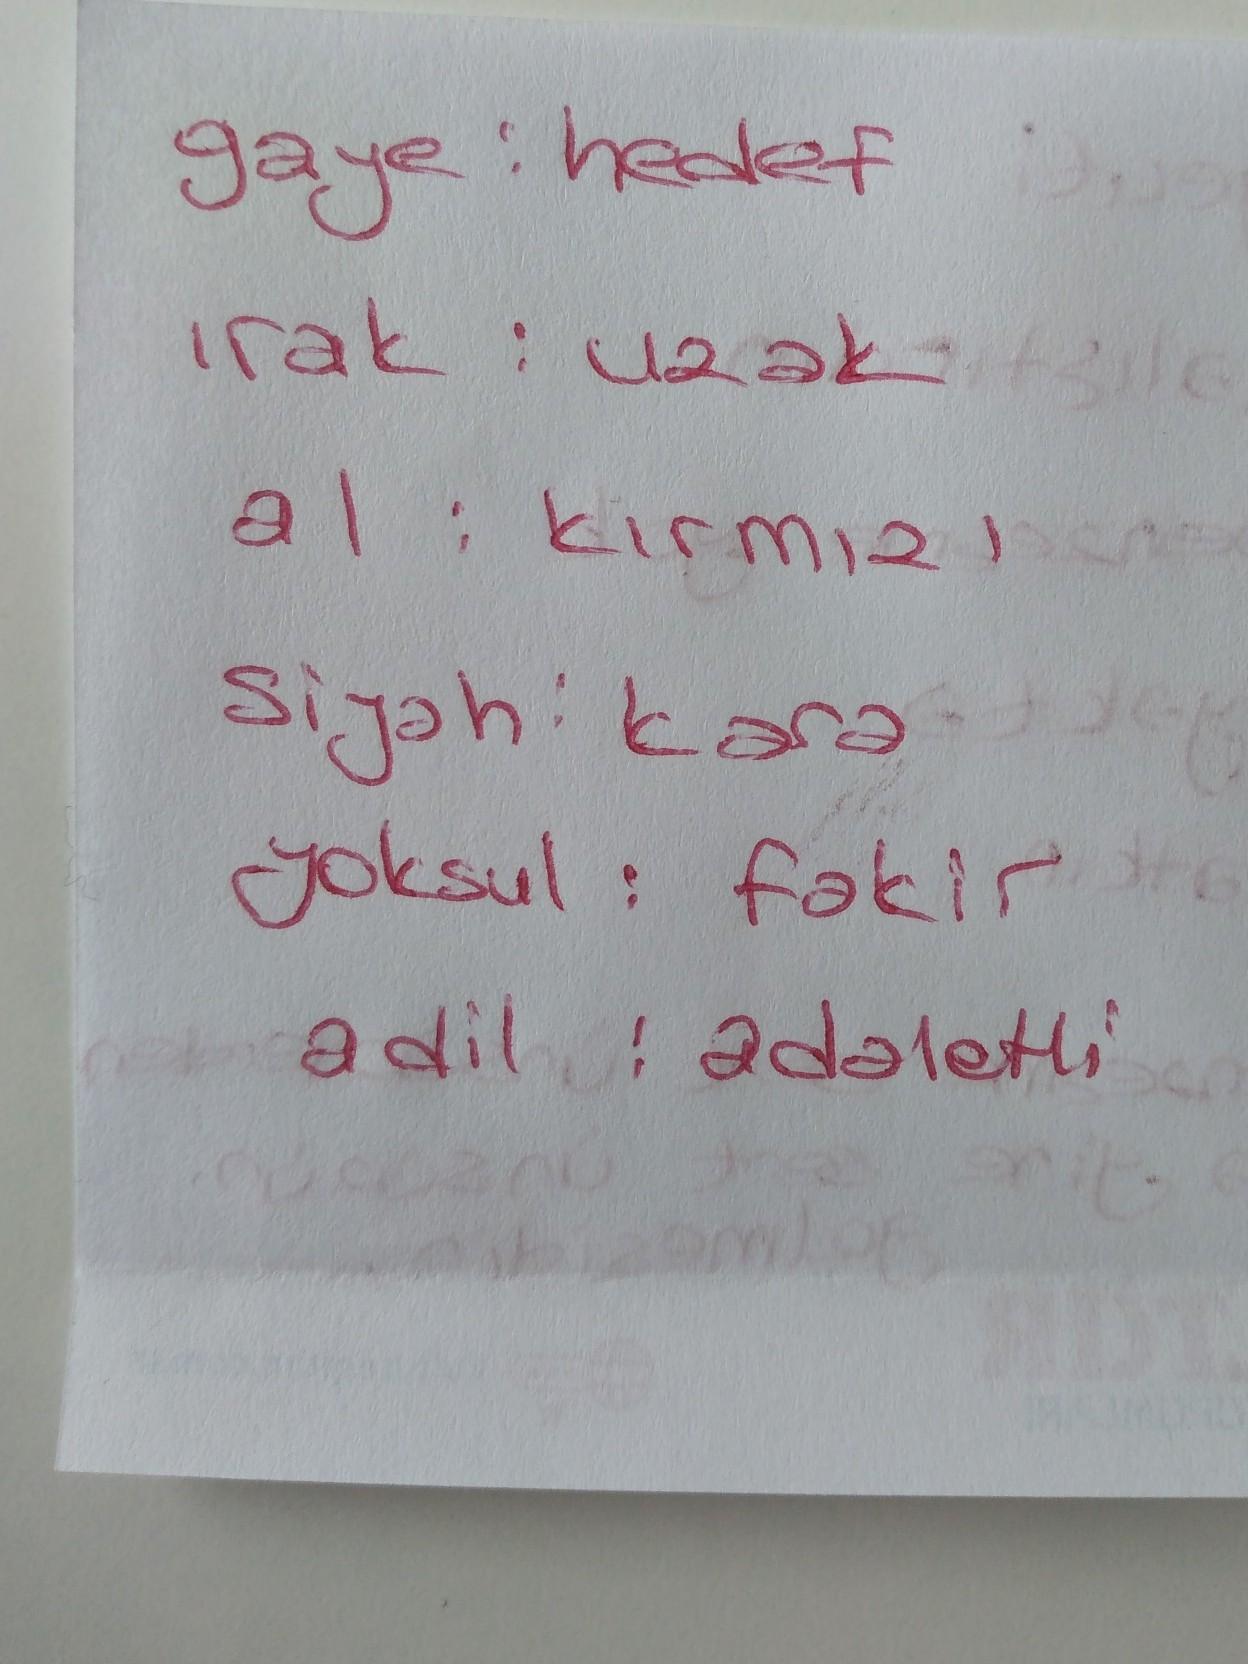 gaye : hedef
ırak : uzak
al : kırmızı
siyah : kara
yoksul : fakir
adil : adaletli